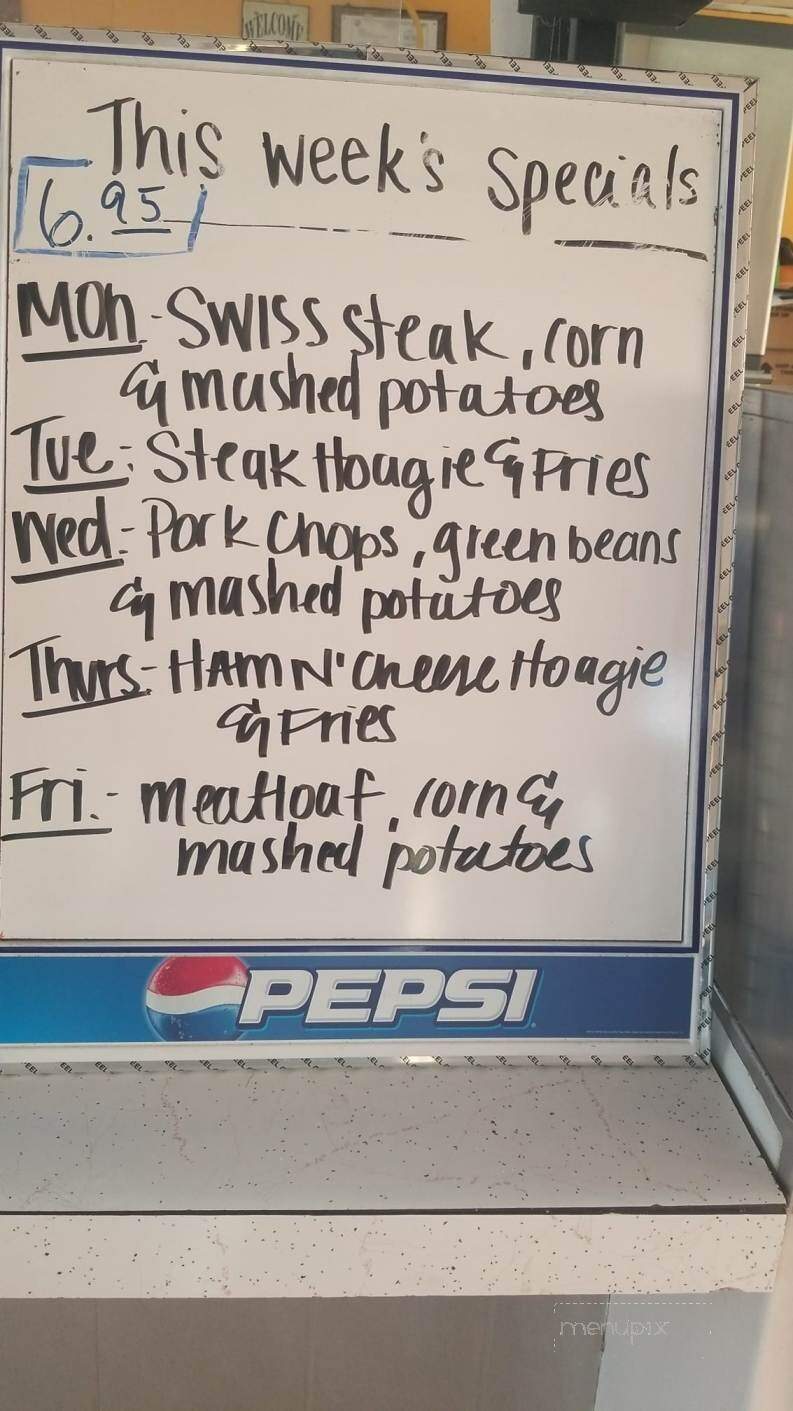 WELCOME
This week's Specials
6.95
Mon.- Swiss steak, corn
& mashed potatoes
Tue: Steak Hougie & Fries
Wed:- Pork Chops, green beans
& mashed potatoes
Thurs- HAM N' Cheese Hoagie
& Fries
Fri.- meatloaf, corn &
mashed potatoes
PEPSI
menupix